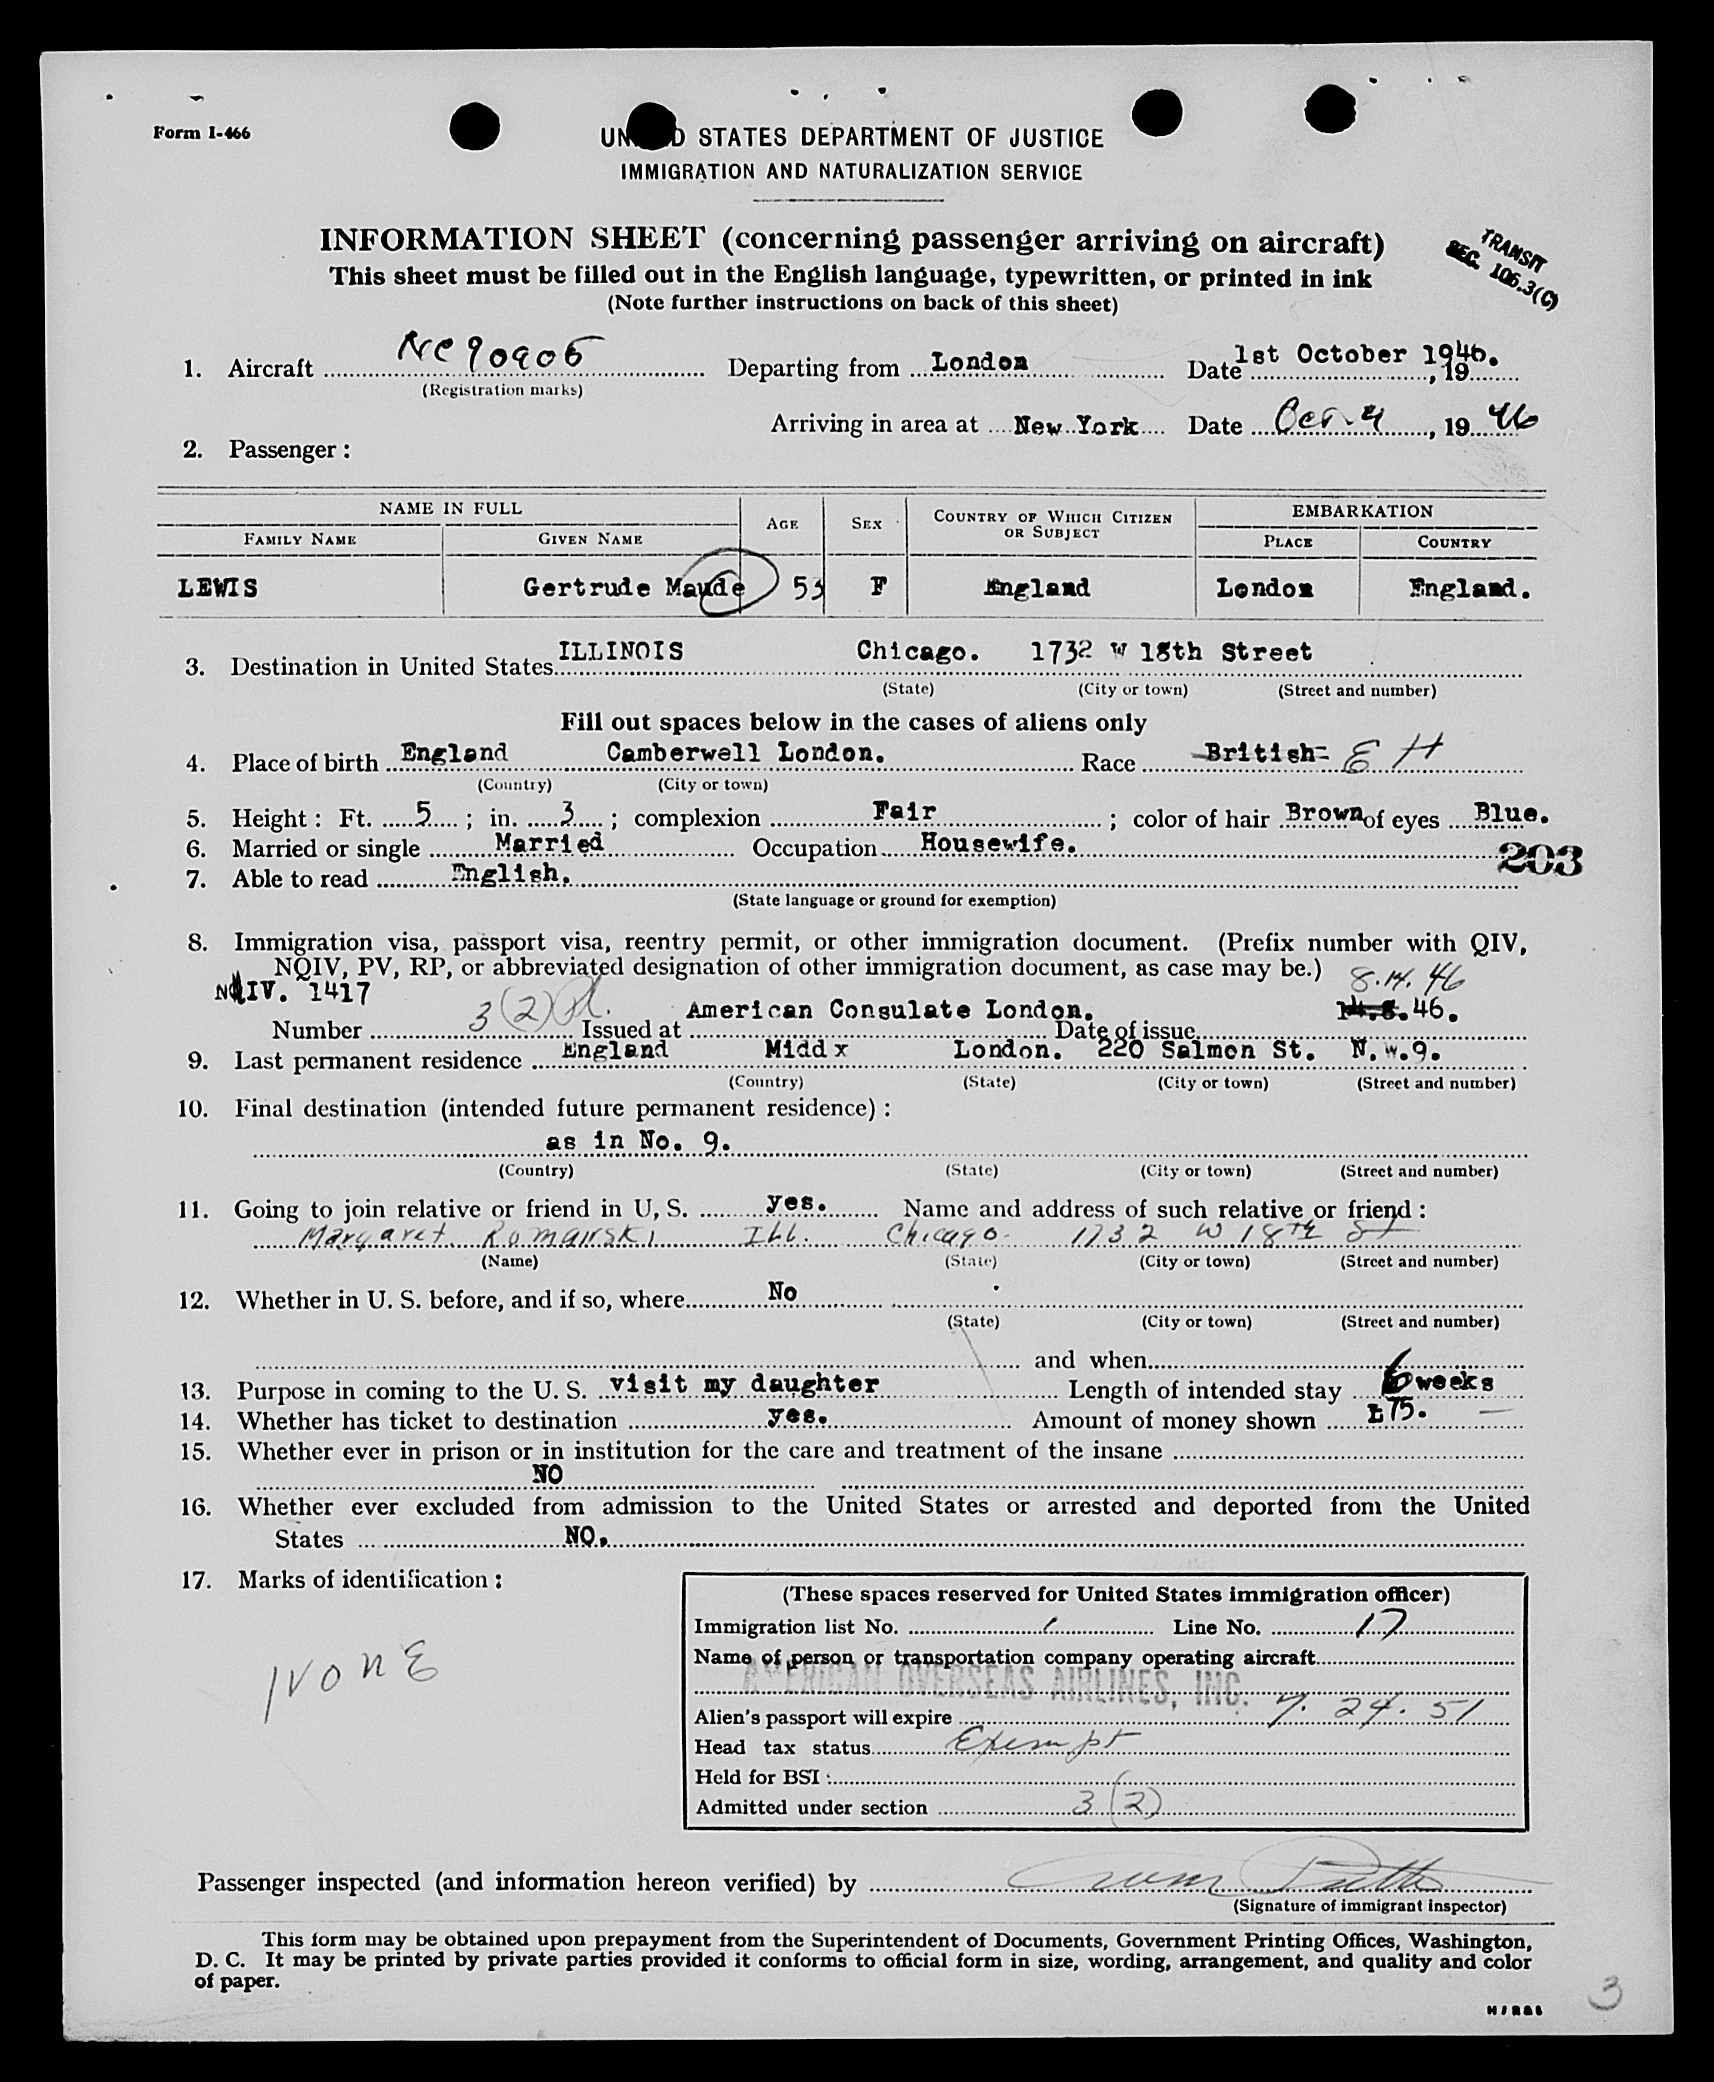 Form I-466
UNITED STATES DEPARTMENT OF JUSTICE
IMMIGRATION AND NATURALIZATION SERVICE
INFORMATION SHEET (concerning passenger arriving on aircraft)
TRANSIT
SEC. 106.3(C)
This sheet must be filled out in the English language, typewritten, or printed in ink
(Note further instructions on back of this sheet)
1. Aircraft NC 90906 Departing from London Date 1st October 1946. , 19
(Registration marks)
Arriving in area at New York Date Oct. 4 , 19 46
2. Passenger :
NAME IN FULL AGE SEX COUNTRY OF WHICH CITIZEN OR SUBJECT EMBARKATION
FAMILY NAME GIVEN NAME PLACE COUNTRY
LEWIS Gertrude Maude 53 F England London England.
3. Destination in United States ILLINOIS Chicago. 1732 W 18th Street
(State) (City or town) (Street and number)
Fill out spaces below in the cases of aliens only
4. Place of birth England Camberwell London. Race British- E H
(Country) (City or town)
5. Height : Ft. 5 ; in. 3 ; complexion Fair ; color of hair Brown of eyes Blue.
6. Married or single Married Occupation Housewife.
203
7. Able to read English.
(State language or ground for exemption)
8. Immigration visa, passport visa, reentry permit, or other immigration document. (Prefix number with QIV,
NQIV, PV, RP, or abbreviated designation of other immigration document, as case may be.) 8.14.46
NQIV. 1417
Number 3(2) Issued at American Consulate London. Date of issue 14.8.46.
9. Last permanent residence England Middx London. 220 Salmon St. N.W.9.
(Country) (State) (City or town) (Street and number)
10. Final destination (intended future permanent residence) :
as in No. 9.
(Country) (State) (City or town) (Street and number)
11. Going to join relative or friend in U. S. yes. Name and address of such relative or friend :
Margaret Romanski Ill. Chicago- 1732 W 18th St
(Name) (State) (City or town) (Street and number)
12. Whether in U. S. before, and if so, where No
(State) (City or town) (Street and number)
and when
13. Purpose in coming to the U. S. visit my daughter Length of intended stay 6 weeks
14. Whether has ticket to destination yes. Amount of money shown £75.
15. Whether ever in prison or in institution for the care and treatment of the insane
NO
16. Whether ever excluded from admission to the United States or arrested and deported from the United
States NO.
17. Marks of identification :
NONE
(These spaces reserved for United States immigration officer)
Immigration list No. 1 Line No. 17
Name of person or transportation company operating aircraft
AMERICAN OVERSEAS AIRLINES, INC.
Alien's passport will expire 7. 24. 51
Head tax status Exempt
Held for BSI
Admitted under section 3(2)
Passenger inspected (and information hereon verified) by
(Signature of immigrant inspector)
This form may be obtained upon prepayment from the Superintendent of Documents, Government Printing Offices, Washington,
D. C. It may be printed by private parties provided it conforms to official form in size, wording, arrangement, and quality and color
of paper.
3